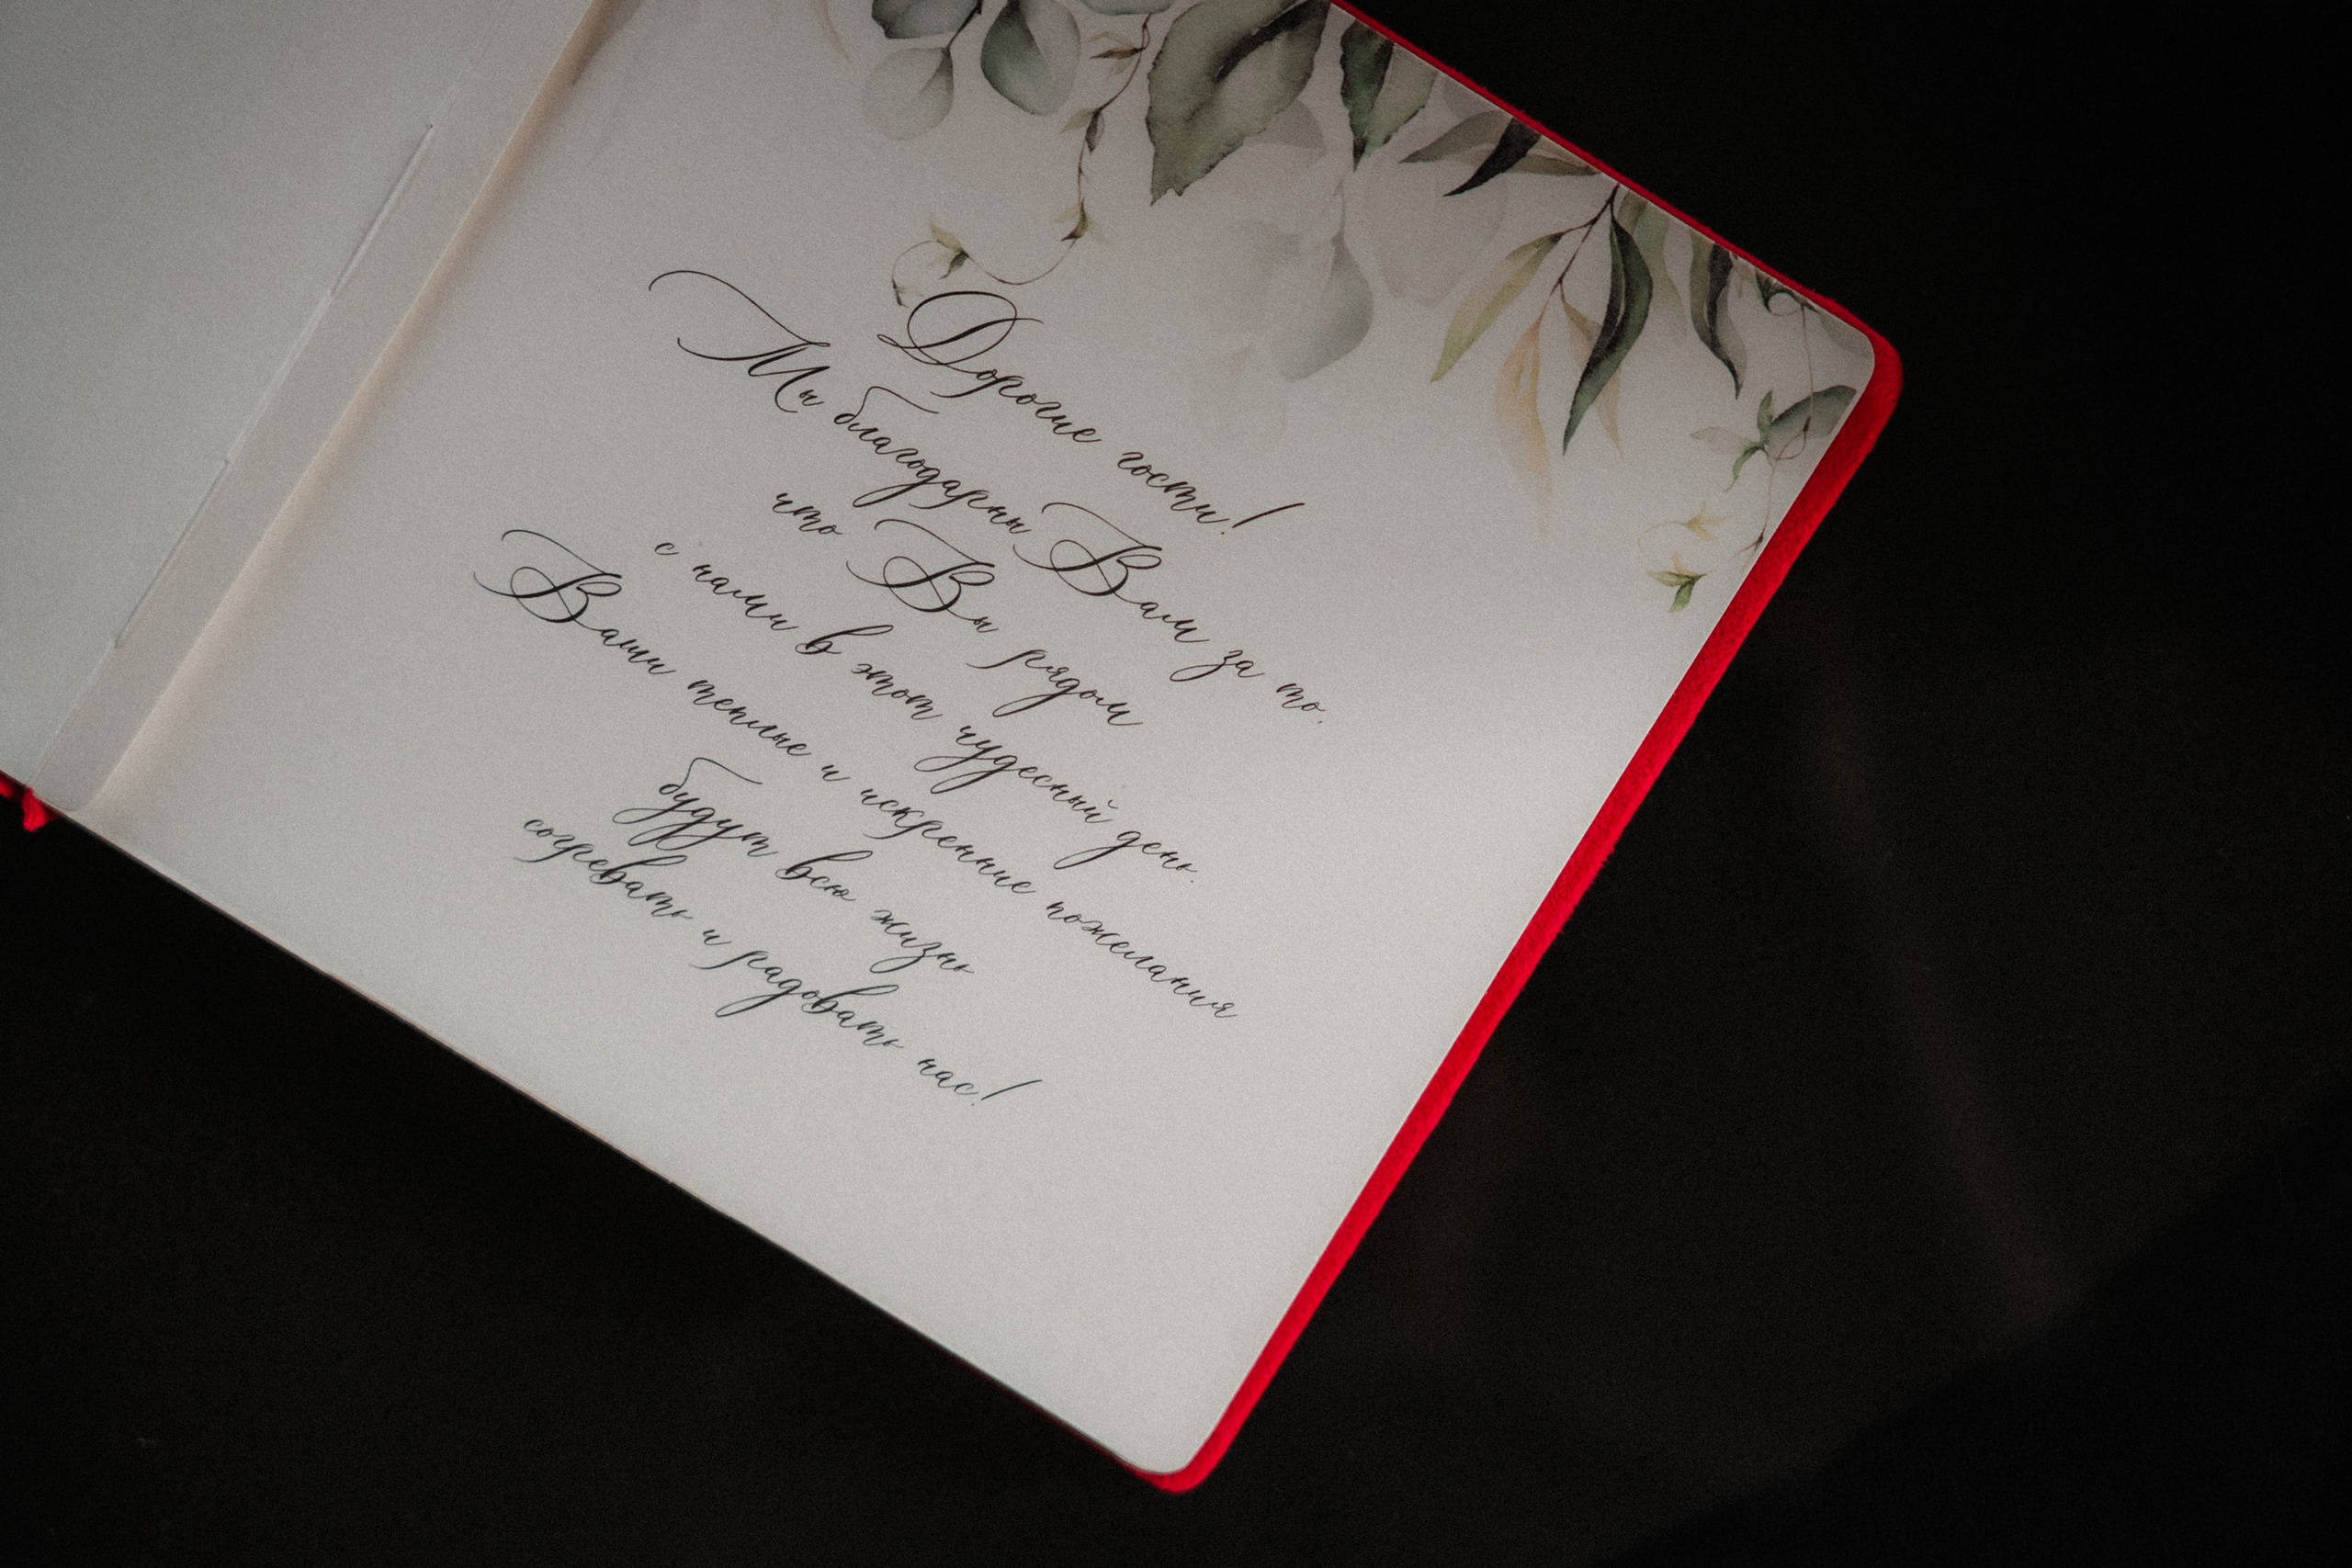 Дорогие гости!
Мы благодарны Вам за то,
что Вы рядом
с нами в этот чудесный день.
Ваши теплые и искренние пожелания
будут всю жизнь
согревать и радовать нас!